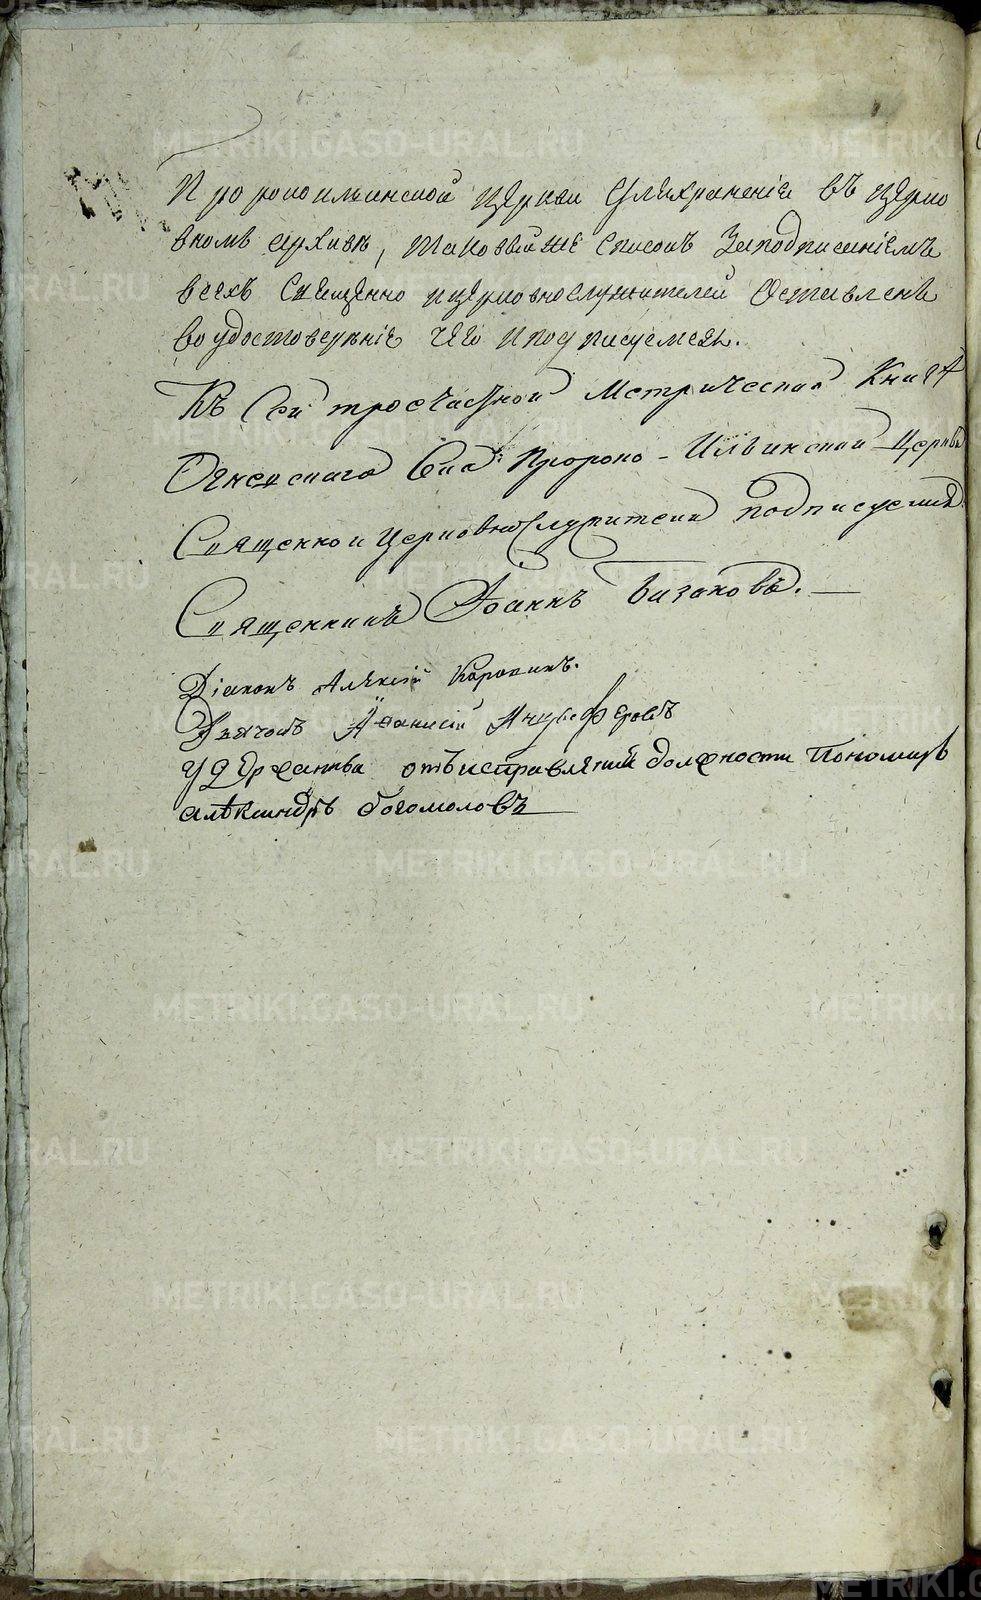 Пророкоильинской церкви для хранения въ церко
вномъ архивѣ, таковый же списокъ Заподписанiемъ
всехъ Священно ицерковнослужителей Оставленъ
воудостоверѣнiе чего иподписуемся.
Къ Сей троечастной Метрической Книгѣ
села Пророко-Ильинской Церкви
Священно и церковнослужители подписуемся
Священникъ Iоаннъ
Дiаконъ Алѣксiй Коровинъ.
Дьячокъ Афанасiй
отъисправлянiй должности Пономарь
алѣксандръ богомоловъ
METRIKI.GASO-URAL.RU